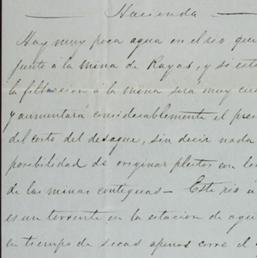 Hacienda
Hay muy poca agua en el rio que
junto á la mina de Rayas, y si est
la filtracion á la mina será muy cu
y aumentará considerablemente el prec
del corto del desagüe, sin decir nada
posibilidad de originar pleitos con lo
de las minas contiguas — Este rio
es un torrente en la estacion de agu
en tiempo de secas apenas corre el